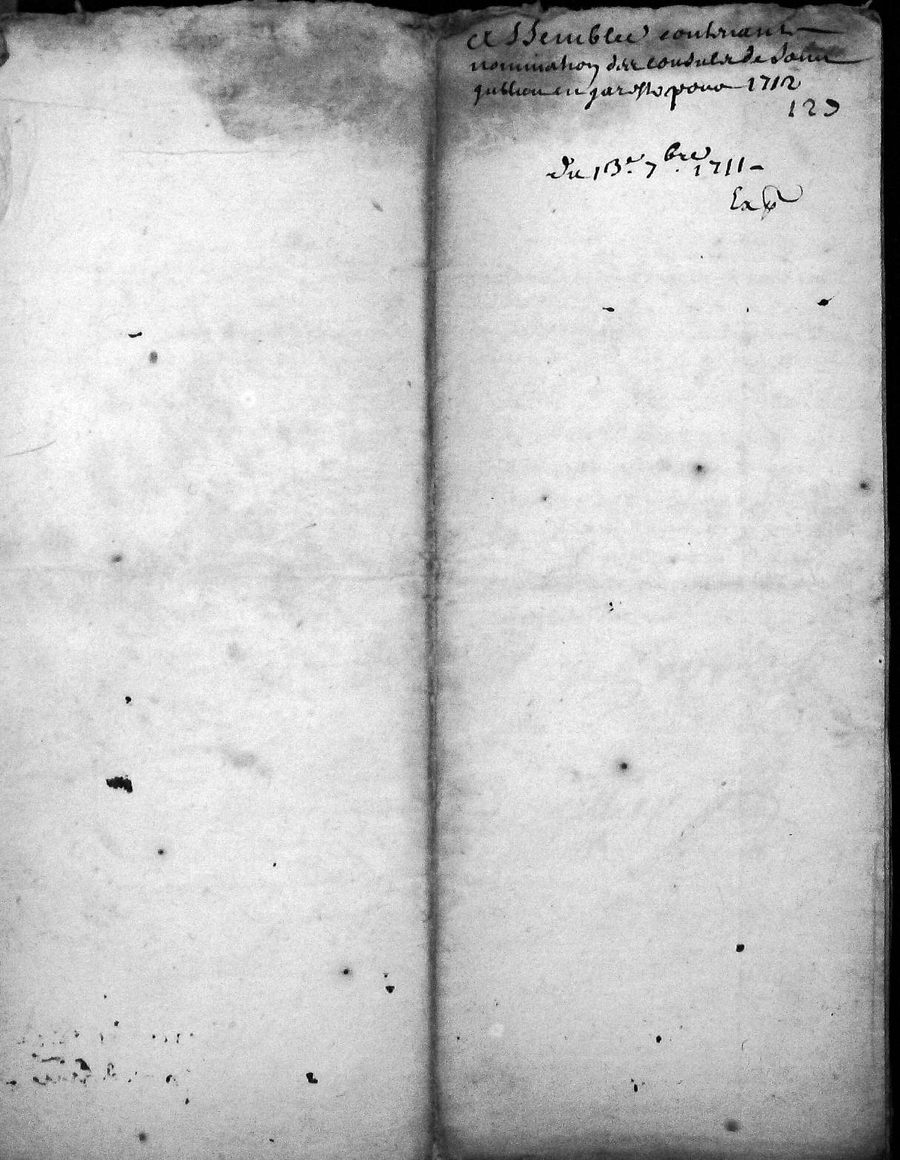 Assemblee contenant
nomination des consuls de Saint
jullien en jarests pour 1712
129
Du 13e. 7bre. 1711
Exp